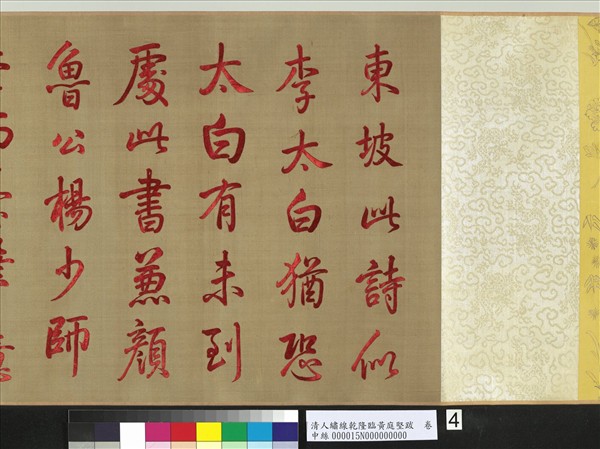 東坡此詩似
李太白猶恐
太白有未到
處此書兼顏
魯公楊少師
清人繡線乾隆臨黃庭堅跋 卷
中絲000015N000000000
4